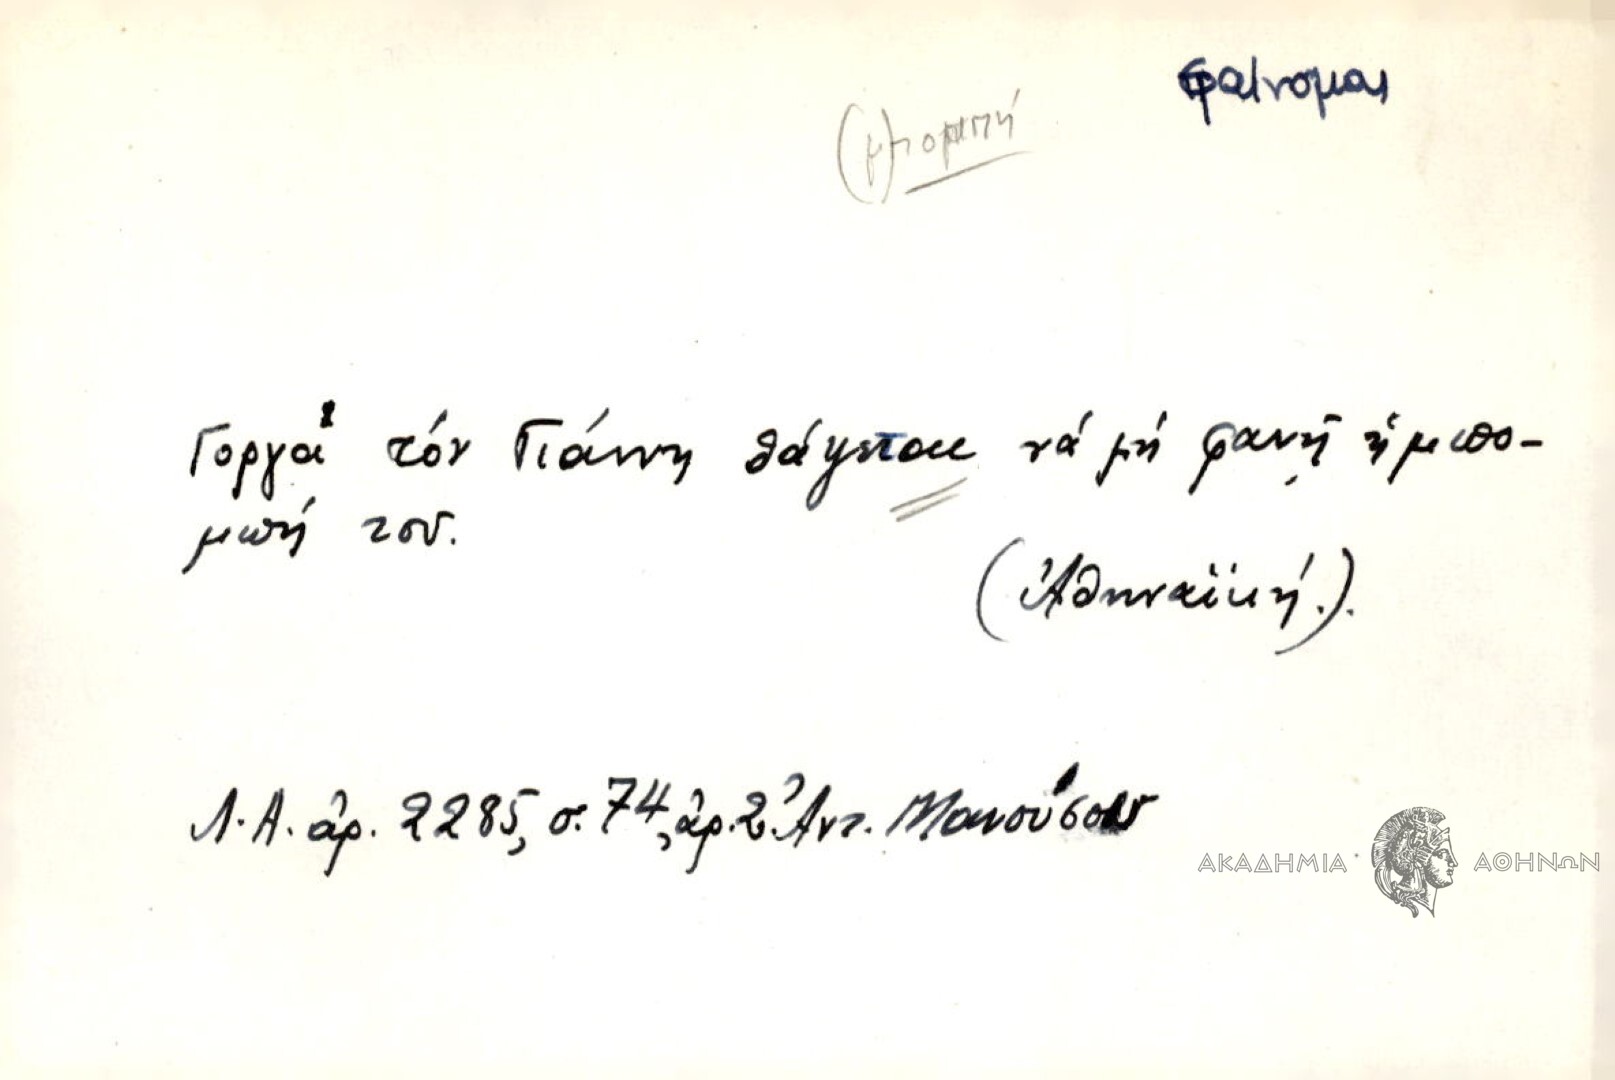 φαίνομαι
(μ)πομπή
Γοργά τόν Γιάννη θάψετε νά μή φανῇ ἡ μπο-
μπή του.
(Ἀθηναϊκή.).
Λ.Α. ἀρ. 2285, σ. 74, ἀρ. 2. Ἀντ. Μανούσου
ΑΚΑΔΗΜΙΑ ΑΘΗΝΩΝ